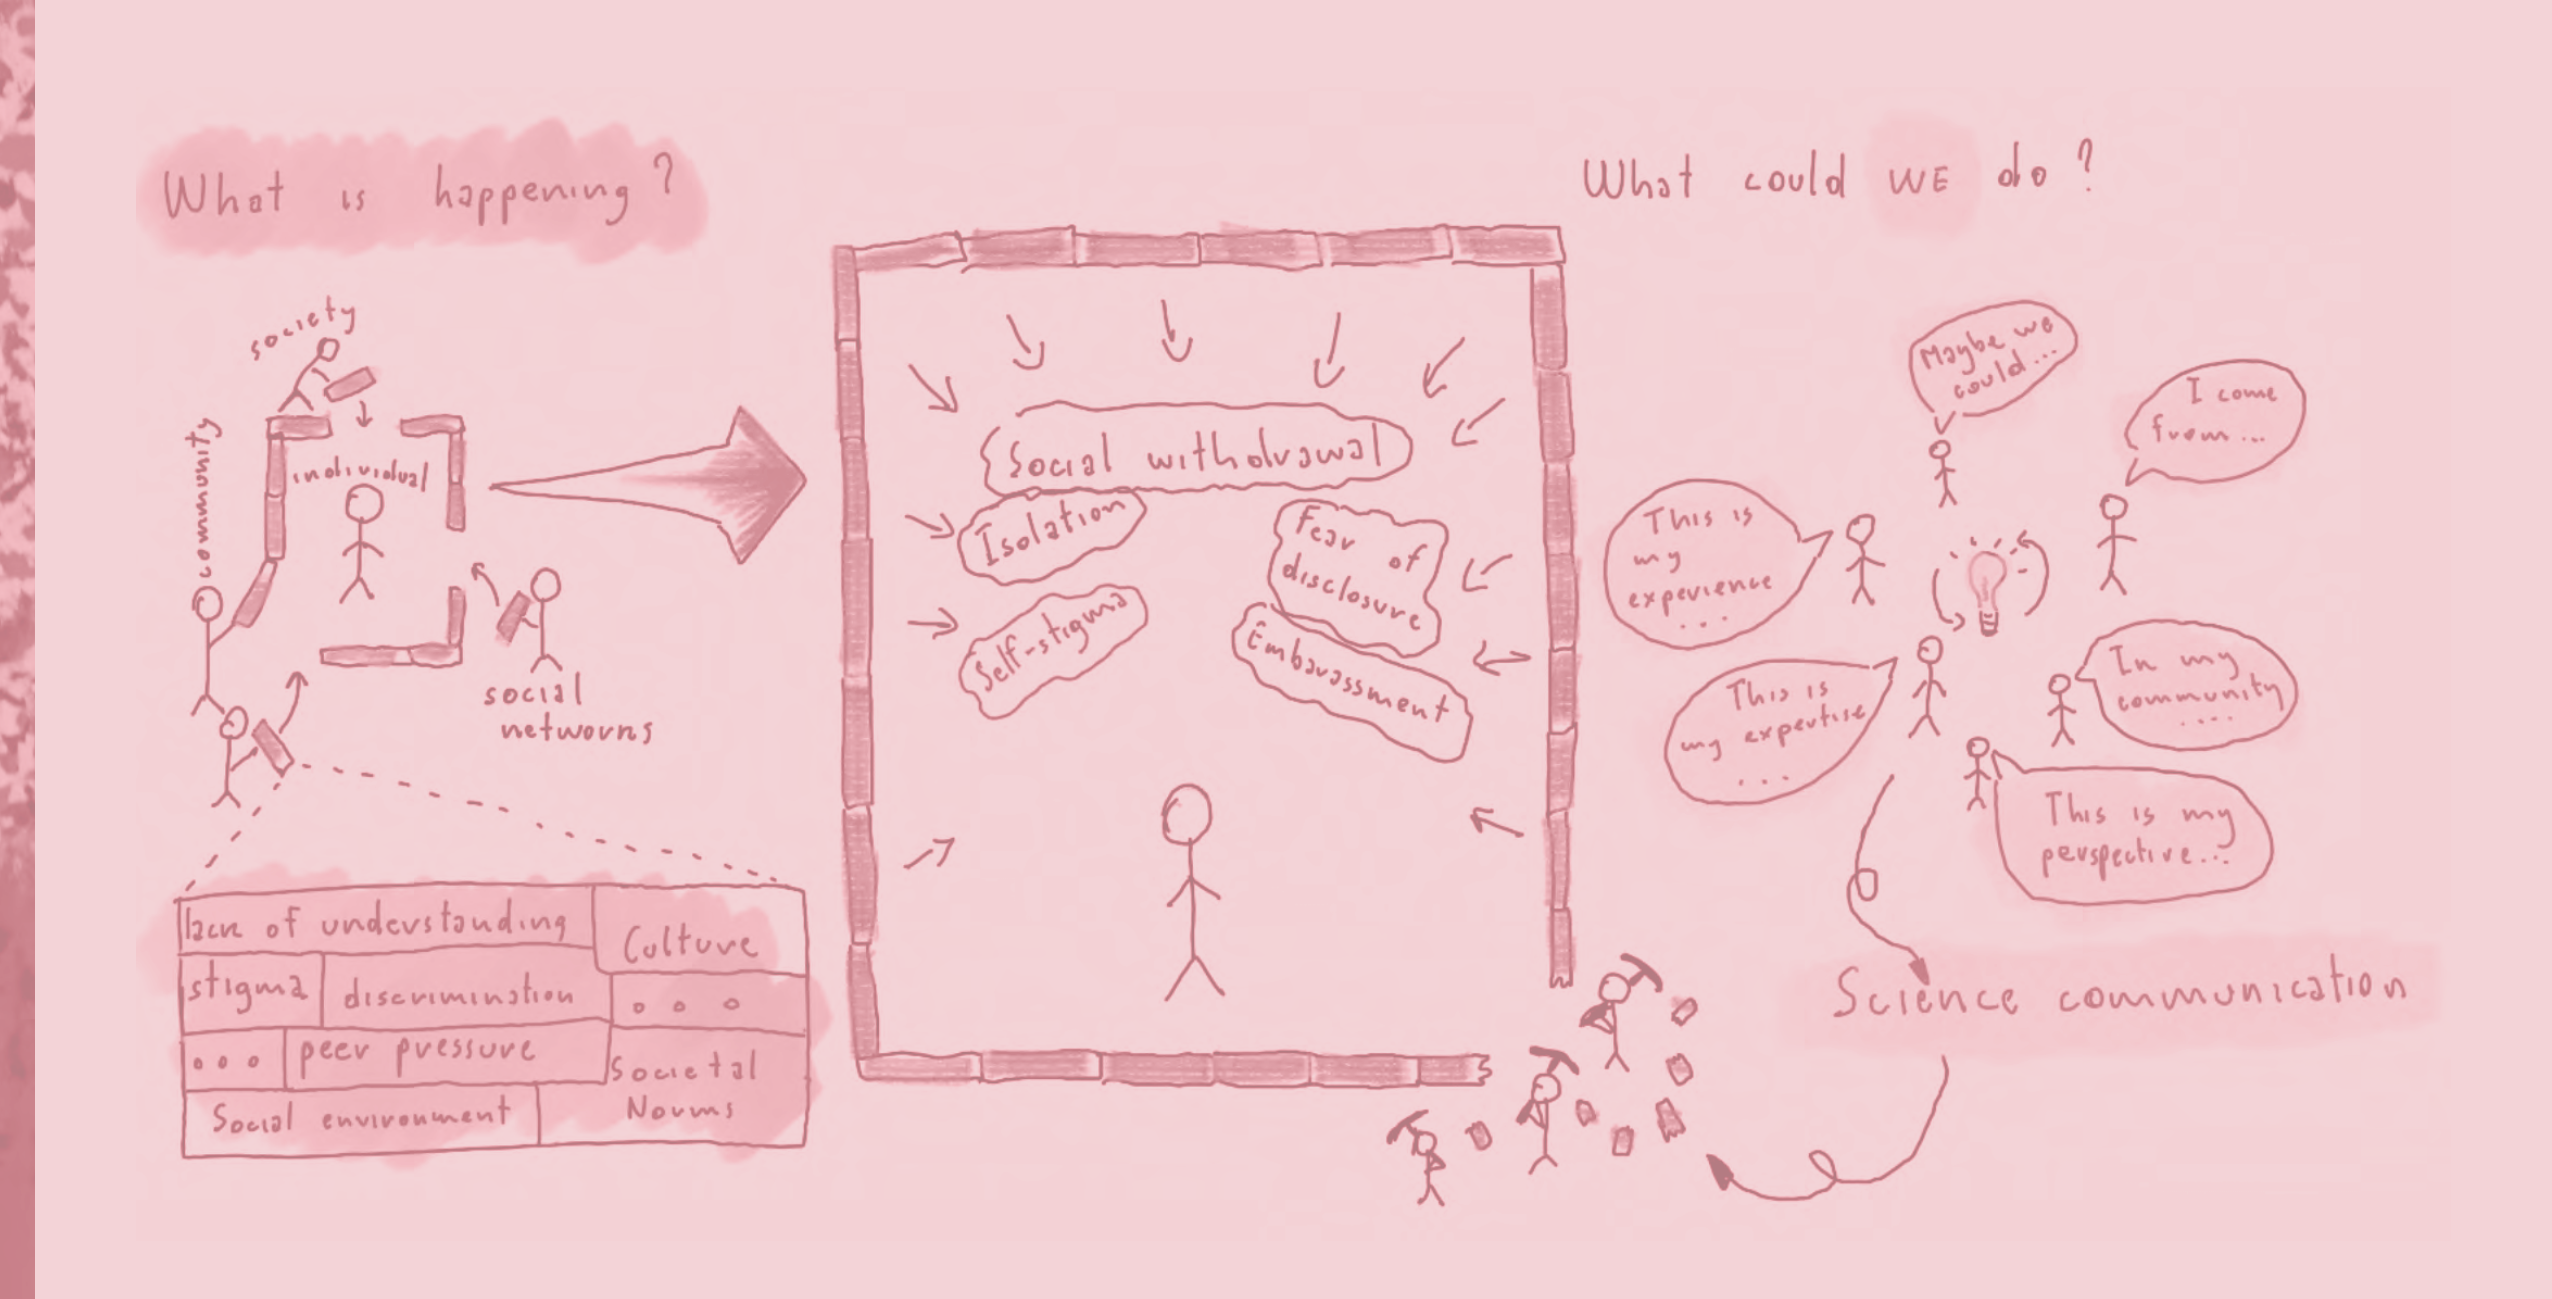 What is happening?
society
community
individual
social
networks
lack of understanding
Culture
stigma
discrimination
...
...
peer pressure
Societal
Norms
Social environment
Social withdrawal
Isolation
Fear of
disclosure
Self-stigma
Embarassment
What could WE do?
Maybe we
could...
I come
from...
This is
my
experience
...
This is
my expertise
...
In my
community
....
This is my
perspective...
Science communication